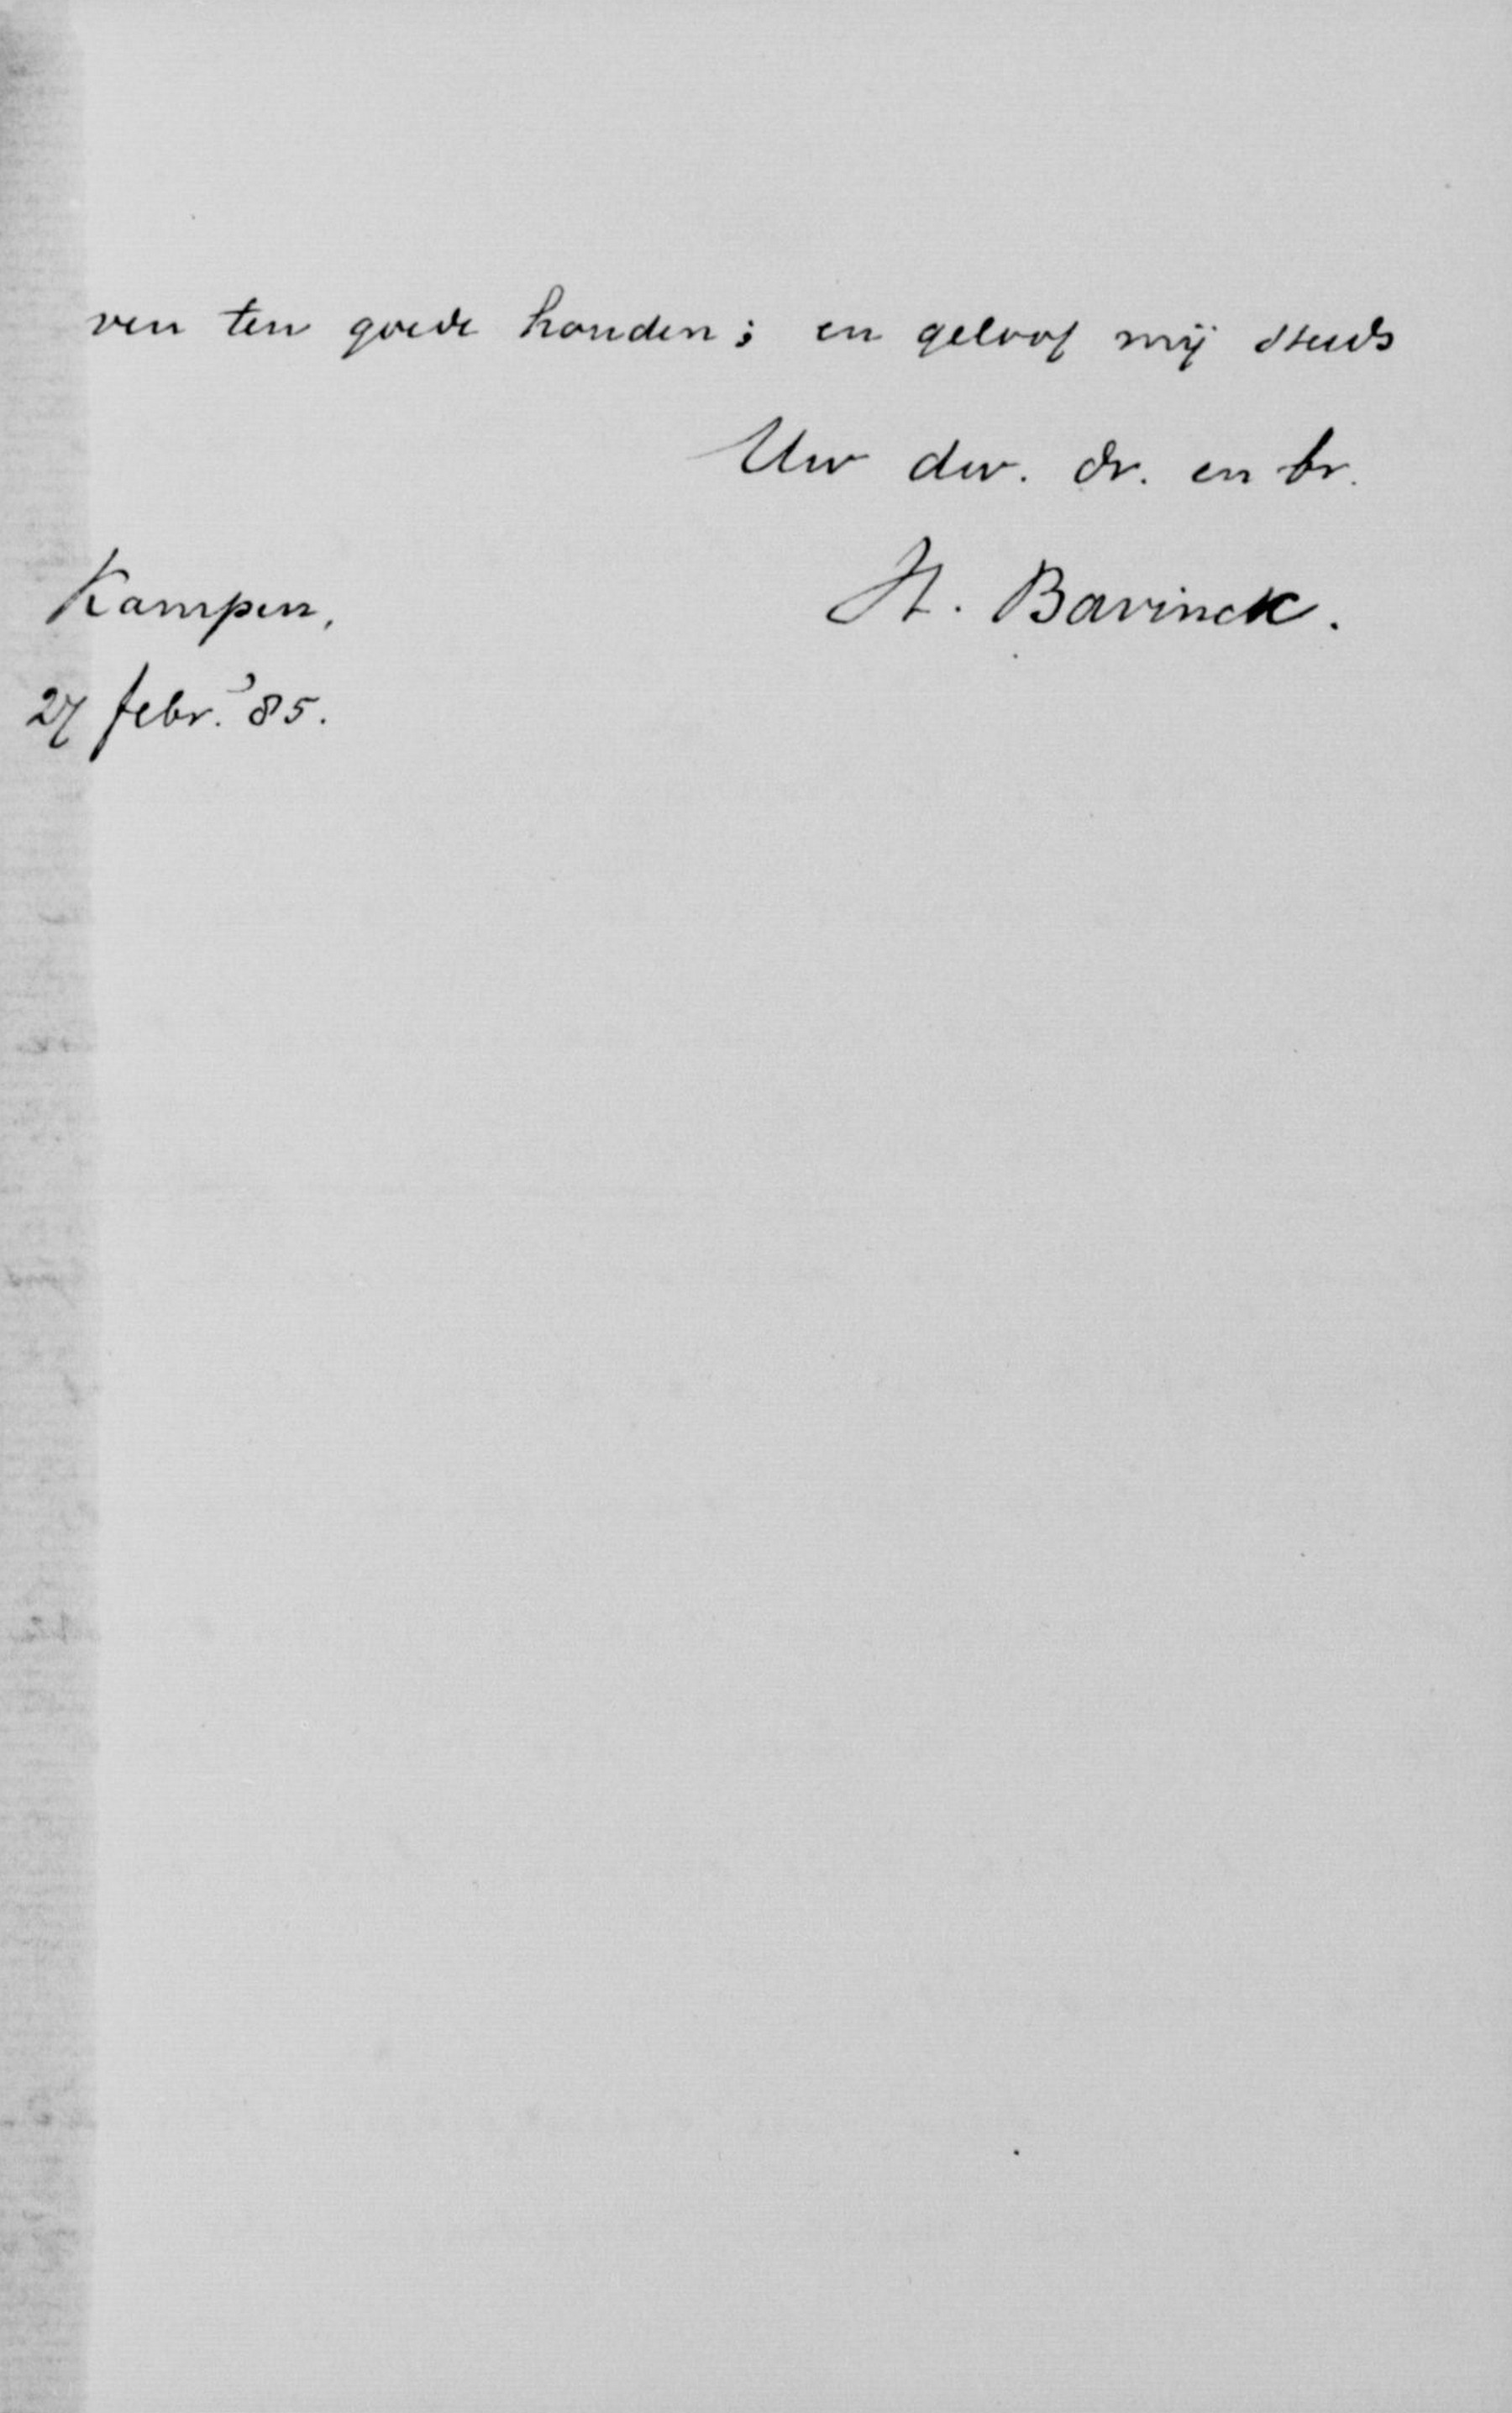 ven ten goede houden; en geloof mij steeds
Uw dw. dr. en br.
H. Bavinck.
Kampen,
27 febr. '85.